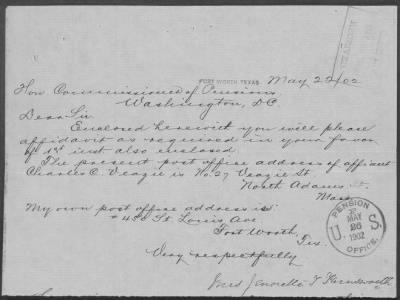 FORT WORTH, TEXAS. May 22/02
Hon. Commissioner of Pensions
Washington, D.C.
Dear Sir
Enclosed herewith you will please
affidavit as required in your favor
of 1st inst also enclosed
The present post office address of affiant
Charles C. Veazie is No. 27 Veazie St.
North Adams
Mass
My own post office address is:
St Louis Ave.
Fort Worth,
Tex.
Very respectfully
Mrs Jennette T
PENSION
MAY
26
1902
U S
OFFICE.